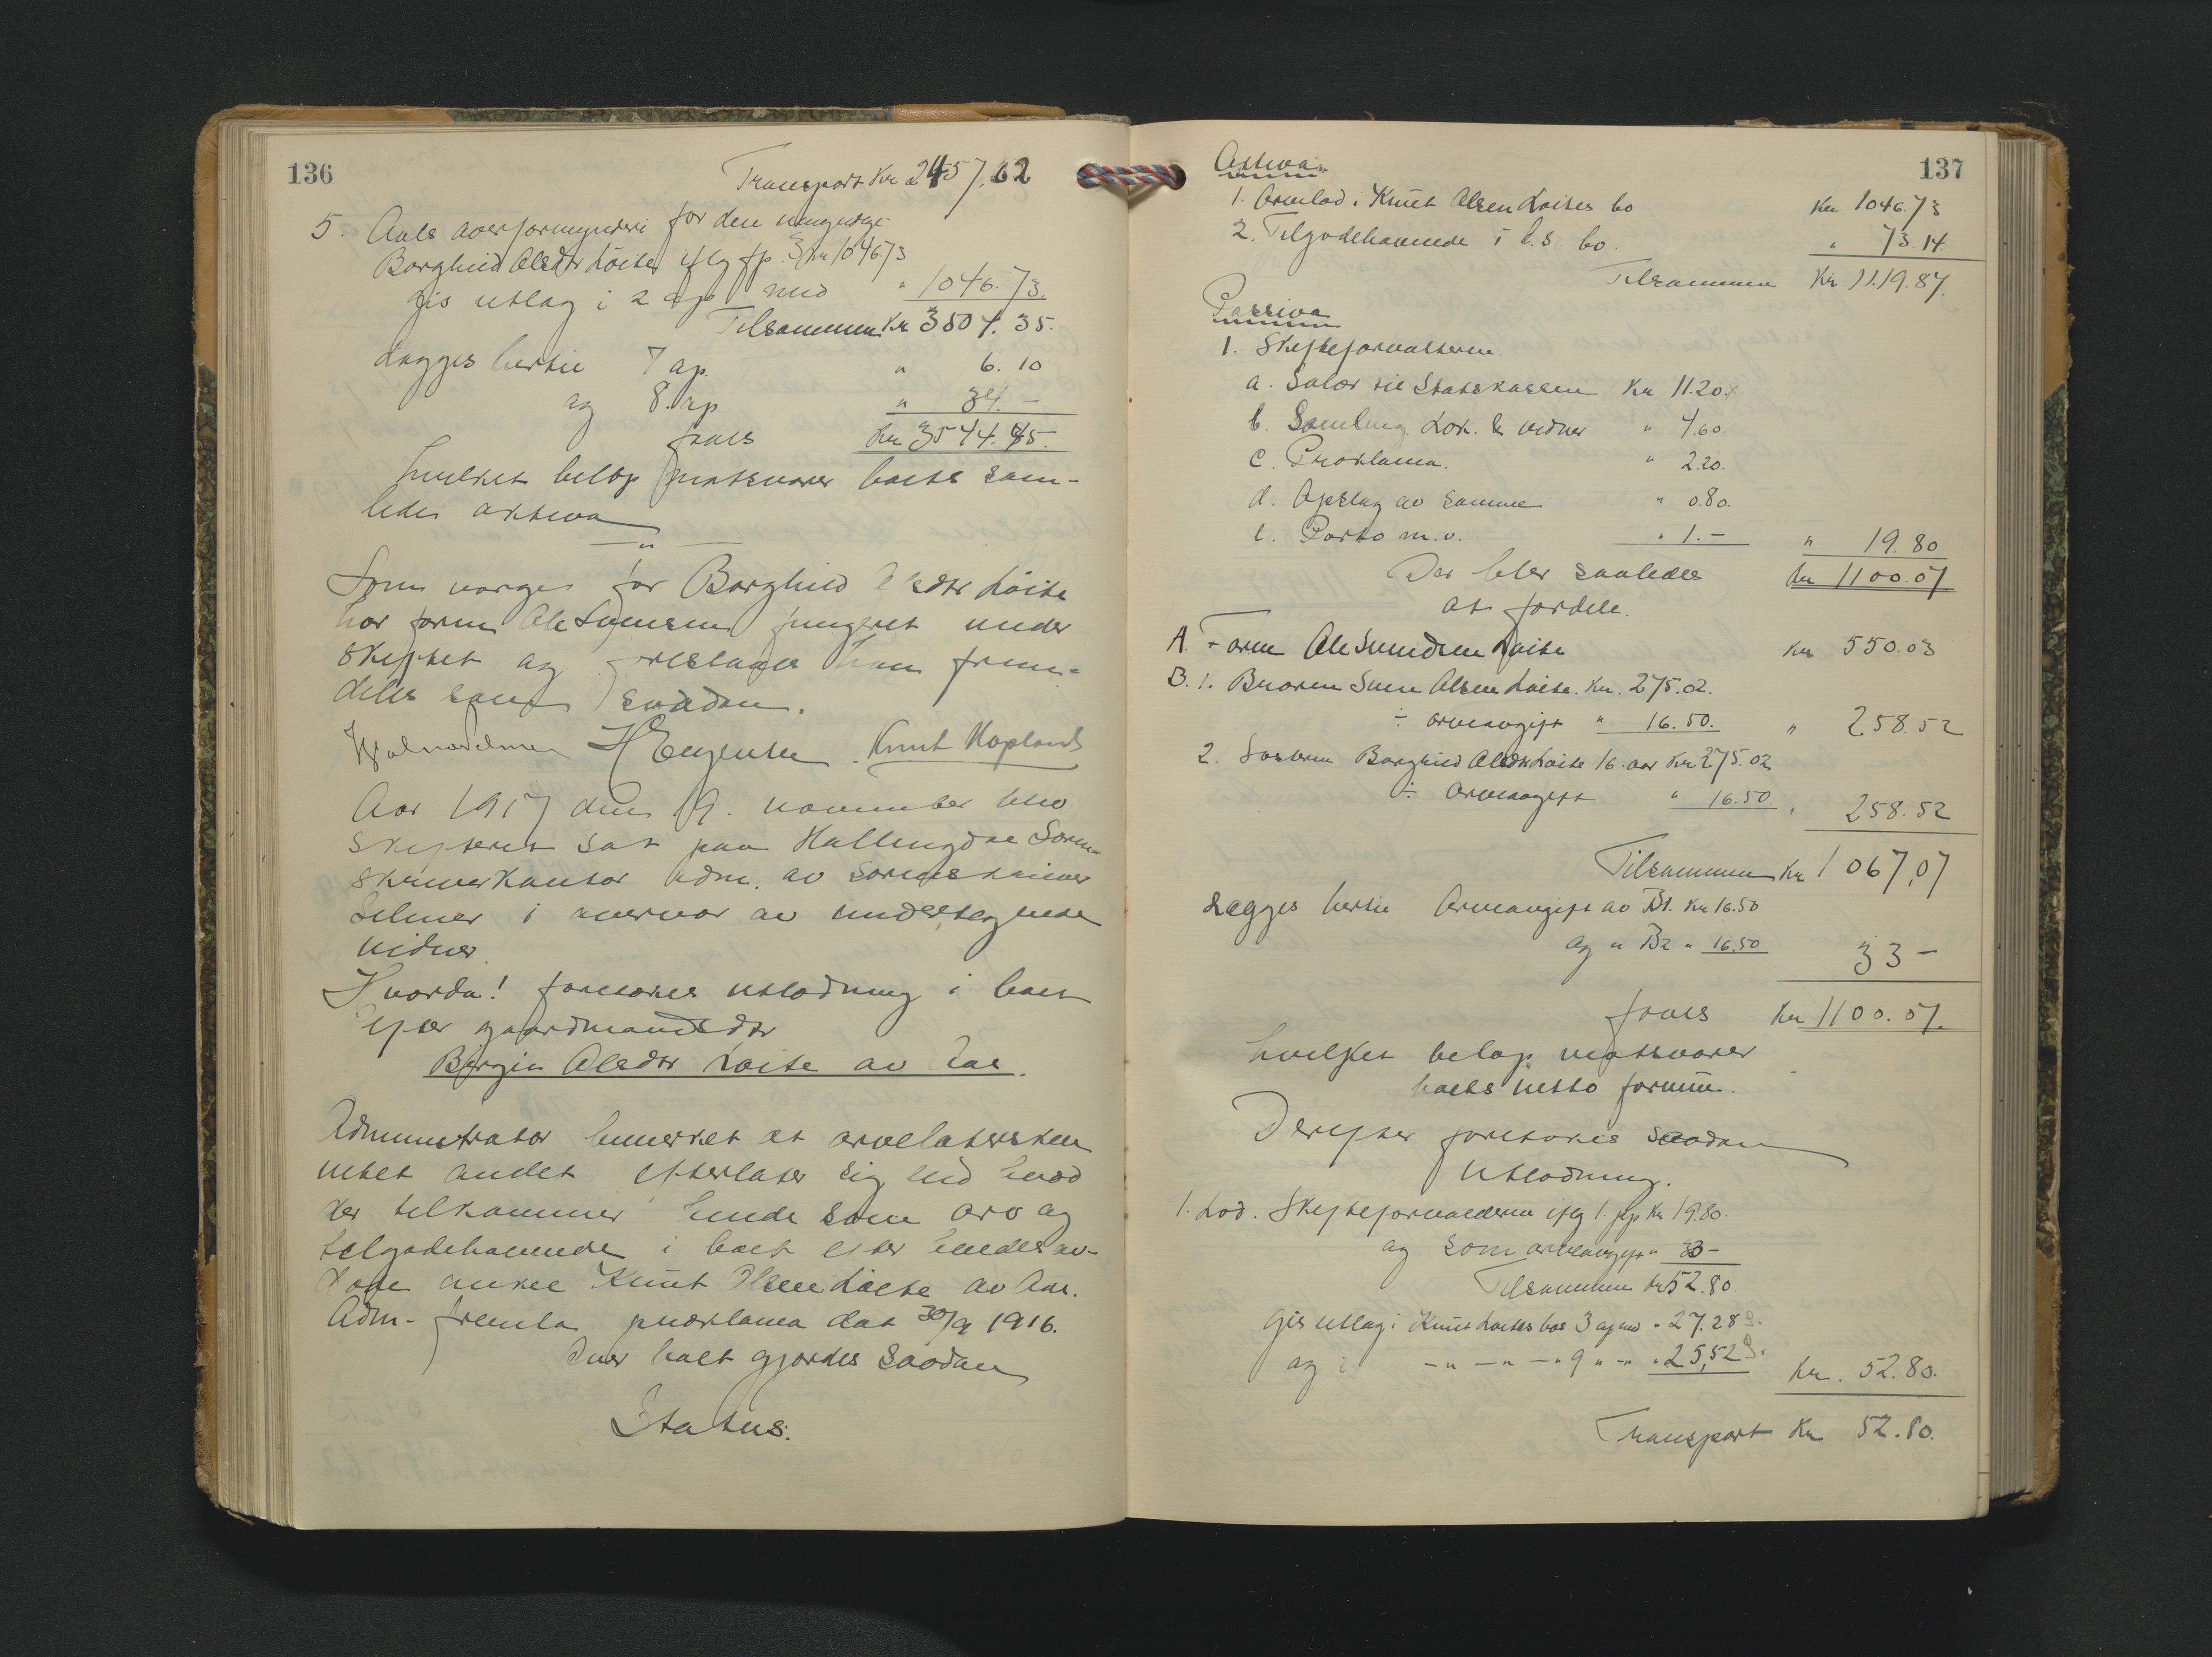 136
Transport Kr 2457.62
5. Aals overformynderi for den umyndige
Borghild Olsdtr Löite iflg fp. 3 Kr 1046.73
gis utlæg i 2 ap med " 1046.73.
Tilsammen Kr 3504.35.
Lægges hertil 7 ap. " 6.10
og 8. ap " 34.-
faaes Kr 3544.45.
hvilket beløp motsvarer boets sam-
lede aktiva
"
Som værge for Borghild Olsdtr Löite
har faren Ole Svendsen fungeret under
skiftet og foreslaaes han frem-
deles som saadan.
Hjalmar Selmer H Engensen. Knut Kopland
Aar 1917 den 19. november blev
skifteret sat paa Hallingdal Soren-
skriverkontor adm. av Sorenskriver
Selmer i overvær av undertegnede
vidner.
Hvorda! foretokes utlodning i boet
efter gaardmandsdtr
Birgit Olsdtr Löite av Aal.
Administrator bemerket at arvelatersken
intet andet efterlater sig end hvad
der tilkommer hende som arv og
tilgodehavende i boet efter hendes av-
døde onkel Knut Olsen Löite av Aal.
Adm. fremla proklama dat 30/9 1916.
Over boet gjordes saadan
Status:
137
Aktiva
1. Arvelod i Knut Olsen Loites bo Kr 1046.73
2. Tilgodehavende i d.s. bo. " 73.14.
Tilsammen Kr 1119.87.
Passiva
1. Skifteforvalteren.
a. Salær til Statskassen Kr 11.20.
b. Samling. Lok. & vidner " 4.60.
c. Proklama. " 2.20.
d. Opslag av samme " 0.80.
e. Porto m.v. " 1.- " 19.80
Der blev saaledes Kr 1100.07
at fordele.
A. Faren Ole Svendsen Loite Kr 550.03
B. 1. Broren Sven Olsen Loite. Kr. 275.02.
÷ arveavgift " 16.50. " 258.52
2. Søsteren Borghild Olsdtr Loite 16 aar Kr 275.02
÷ Arveavgift " 16.50. " 258.52
Tilsammen Kr 1067,07
Lægges hertil Arveavgift av B1. Kr 16.50
og " B2 " 16.50 33 -
faaes Kr 1100.07.
hvilket beløp motsvarer
boets netto formue.
Derefter foretokes saadan
Utlodning.
1. Lod. Skifteforvalteren iflg 1. pp Kr 19.80.
og som arveavgift " 33 -
Tilsammen Kr 52.80
gis utlæg i Knut Loites bos 3 ap med " 27.28
og i - " - " - " 9 " - " " 25,52 Kr. 52.80.
Transport Kr 52.80.